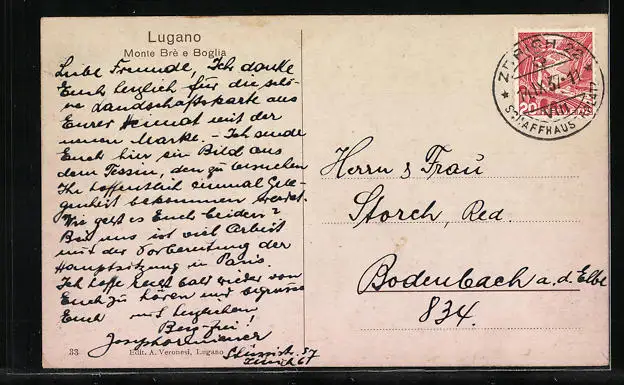 Lugano
Monte Brè e Boglia
Liebe Freunde, Ich danke
Euch herzlich für die schö-
ne Landschaftskarte aus
Eurer Heimat mit der
neuen Marke. - Ich sende
Euch hier ein Bild aus
dem Tessin, den zu besuchen
Ihr hoffentlich einmal Gele-
genheit bekommen werdet.
Wie geht es Euch beiden?
Bei uns ist viel Arbeit
mit der Vorbereitung der
Hauptsitzung in Paris.
Ich hoffe recht bald wieder von
Euch zu hören und begrüsse
Euch mit herzlichem
Berg-frei!
33
Edit. A. Veronesi, Lugano
57
Zürich 6
ZÜRICH 22
IX.37
VIII
SCHAFFHAUS.
20
Herrn & Frau
Storch, Red.
Bodenbach a.d. Elbe
834.